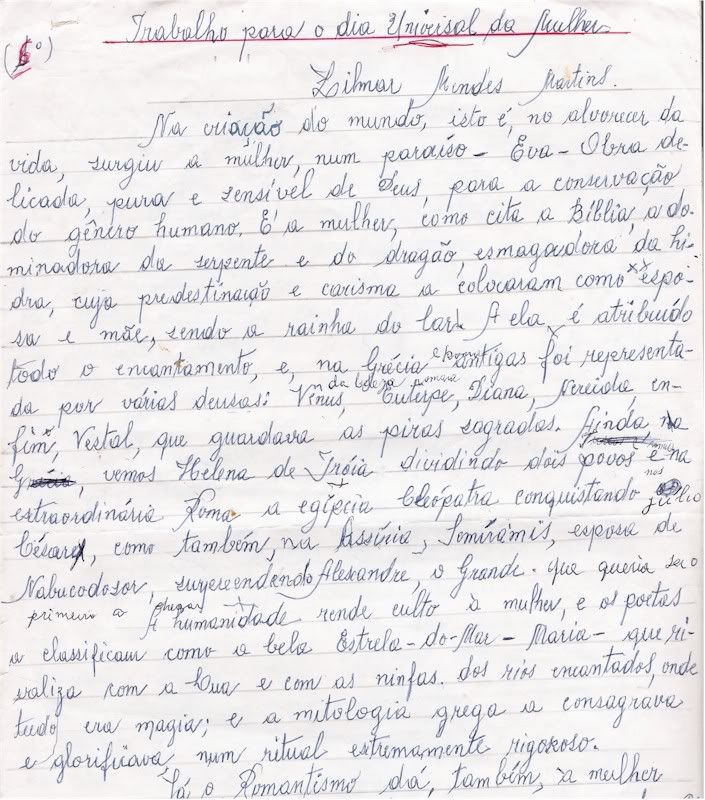 Trabalho para o dia Universal da Mulher
(1º)
Zilmar Mendes Martins.
Na criação do mundo, isto é, no alvorecer da
vida, surgiu a mulher, num paraíso - Eva - Obra de-
licada, pura e sensível de Deus, para a conservação
do gênero humano. E' a mulher, como cita a Bíblia, a do-
minadora da serpente e do dragão, esmagadora da hi-
dra, cuja predestinação e carisma a colocaram como espo-
sa e mãe, sendo a rainha do lar. A ela, é atribuído
todo o encantamento, e, na Grécia e Roma antigas foi representa-
da por várias deusas: Vênus, da beleza romana Euterpe, Diana, Nereida, en-
fim, Vestal, que guardava as piras sagradas. Ainda, na
vemos Helena de Tróia dividindo dois povos e na
extraordinária Roma a egípcia Cleópatra conquistando Júlio
César, como também, na Assíria, Semíramis, esposa de
Nabucodosor, surpreendendo Alexandre, o Grande. que queria ser o
primeiro a chegar A humanidade rende culto à mulher, e os poetas
a classificam como a bela Estrela-do-Mar - Maria - que ri-
valiza com a Lua e com as ninfas. dos rios encantados, onde
tudo era magia; e a mitologia grega a consagrava
e glorificava num ritual estremamente rigoroso.
Já o Romantismo dá, também, a mulher